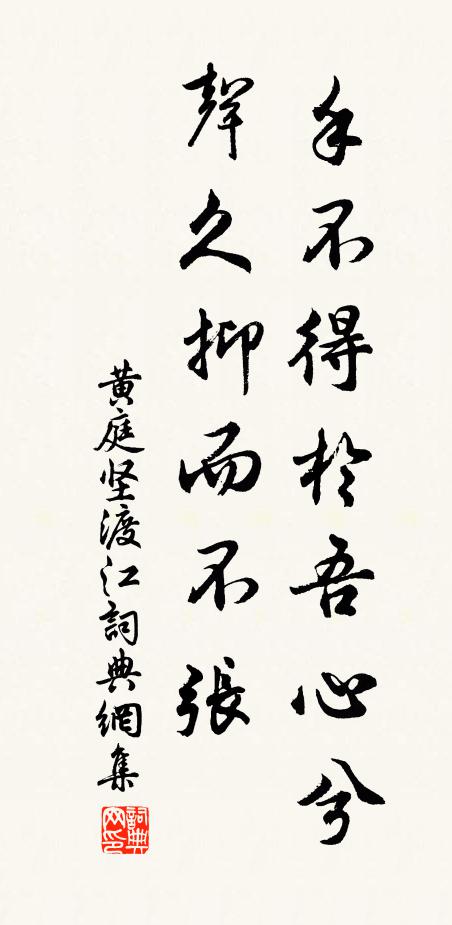 手不得於吾心兮
聲久抑而不張
黄庭坚渡江詞典網集
詞典
网印